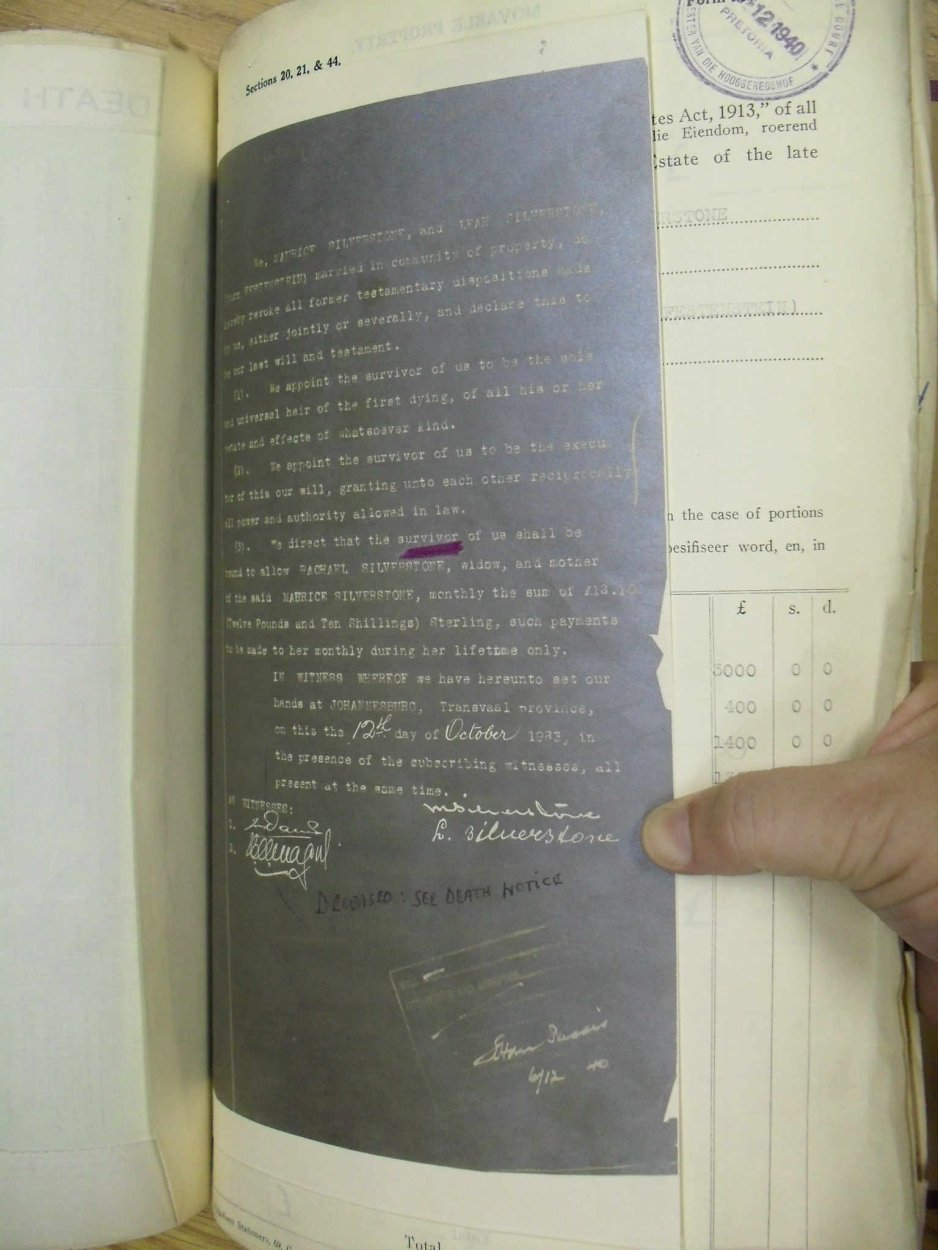 MOVABLE PROPERTY.
DEATH
Sections 20, 21, & 44.
12 1940
PRETORIA
VAN DIE HOOGGEREGSHOF
tes Act, 1913," of all
lie Eiendom, roerend
Estate of the late
RSTONE
We, MAURICE SILVERSTONE, and LEAH SILVERSTONE,
married in community of property, do
hereby revoke all former testamentary dispositions made
by us, either jointly or severally, and declare this to
be our last will and testament.
(1). We appoint the survivor of us to be the sole
and universal heir of the first dying, of all his or her
estate and effects of whatsoever kind.
(2). We appoint the survivor of us to be the execu-
tor of this our will, granting unto each other reciprocally
all power and authority allowed in law.
(3). We direct that the survivor of us shall be
bound to allow RACHAEL SILVERSTONE, widow, and mother
of the said MAURICE SILVERSTONE, monthly the sum of
(Twelve Pounds and Ten Shillings) Sterling, such payments
to be made to her monthly during her lifetime only.
IN WITNESS WHEREOF we have hereunto set our
hands at JOHANNESBURG, Transvaal province,
on this the 12th day of October 1933, in
the presence of the subscribing witnesses, all
present at the same time.
WITNESSES:
1.
2.
MSilverstone
L. Silverstone
DECEASED: SEE DEATH NOTICE
6/12 40
n the case of portions
besifiseer word, en, in
£ s. d.
3000 0 0
400 0 0
1400 0 0
Total